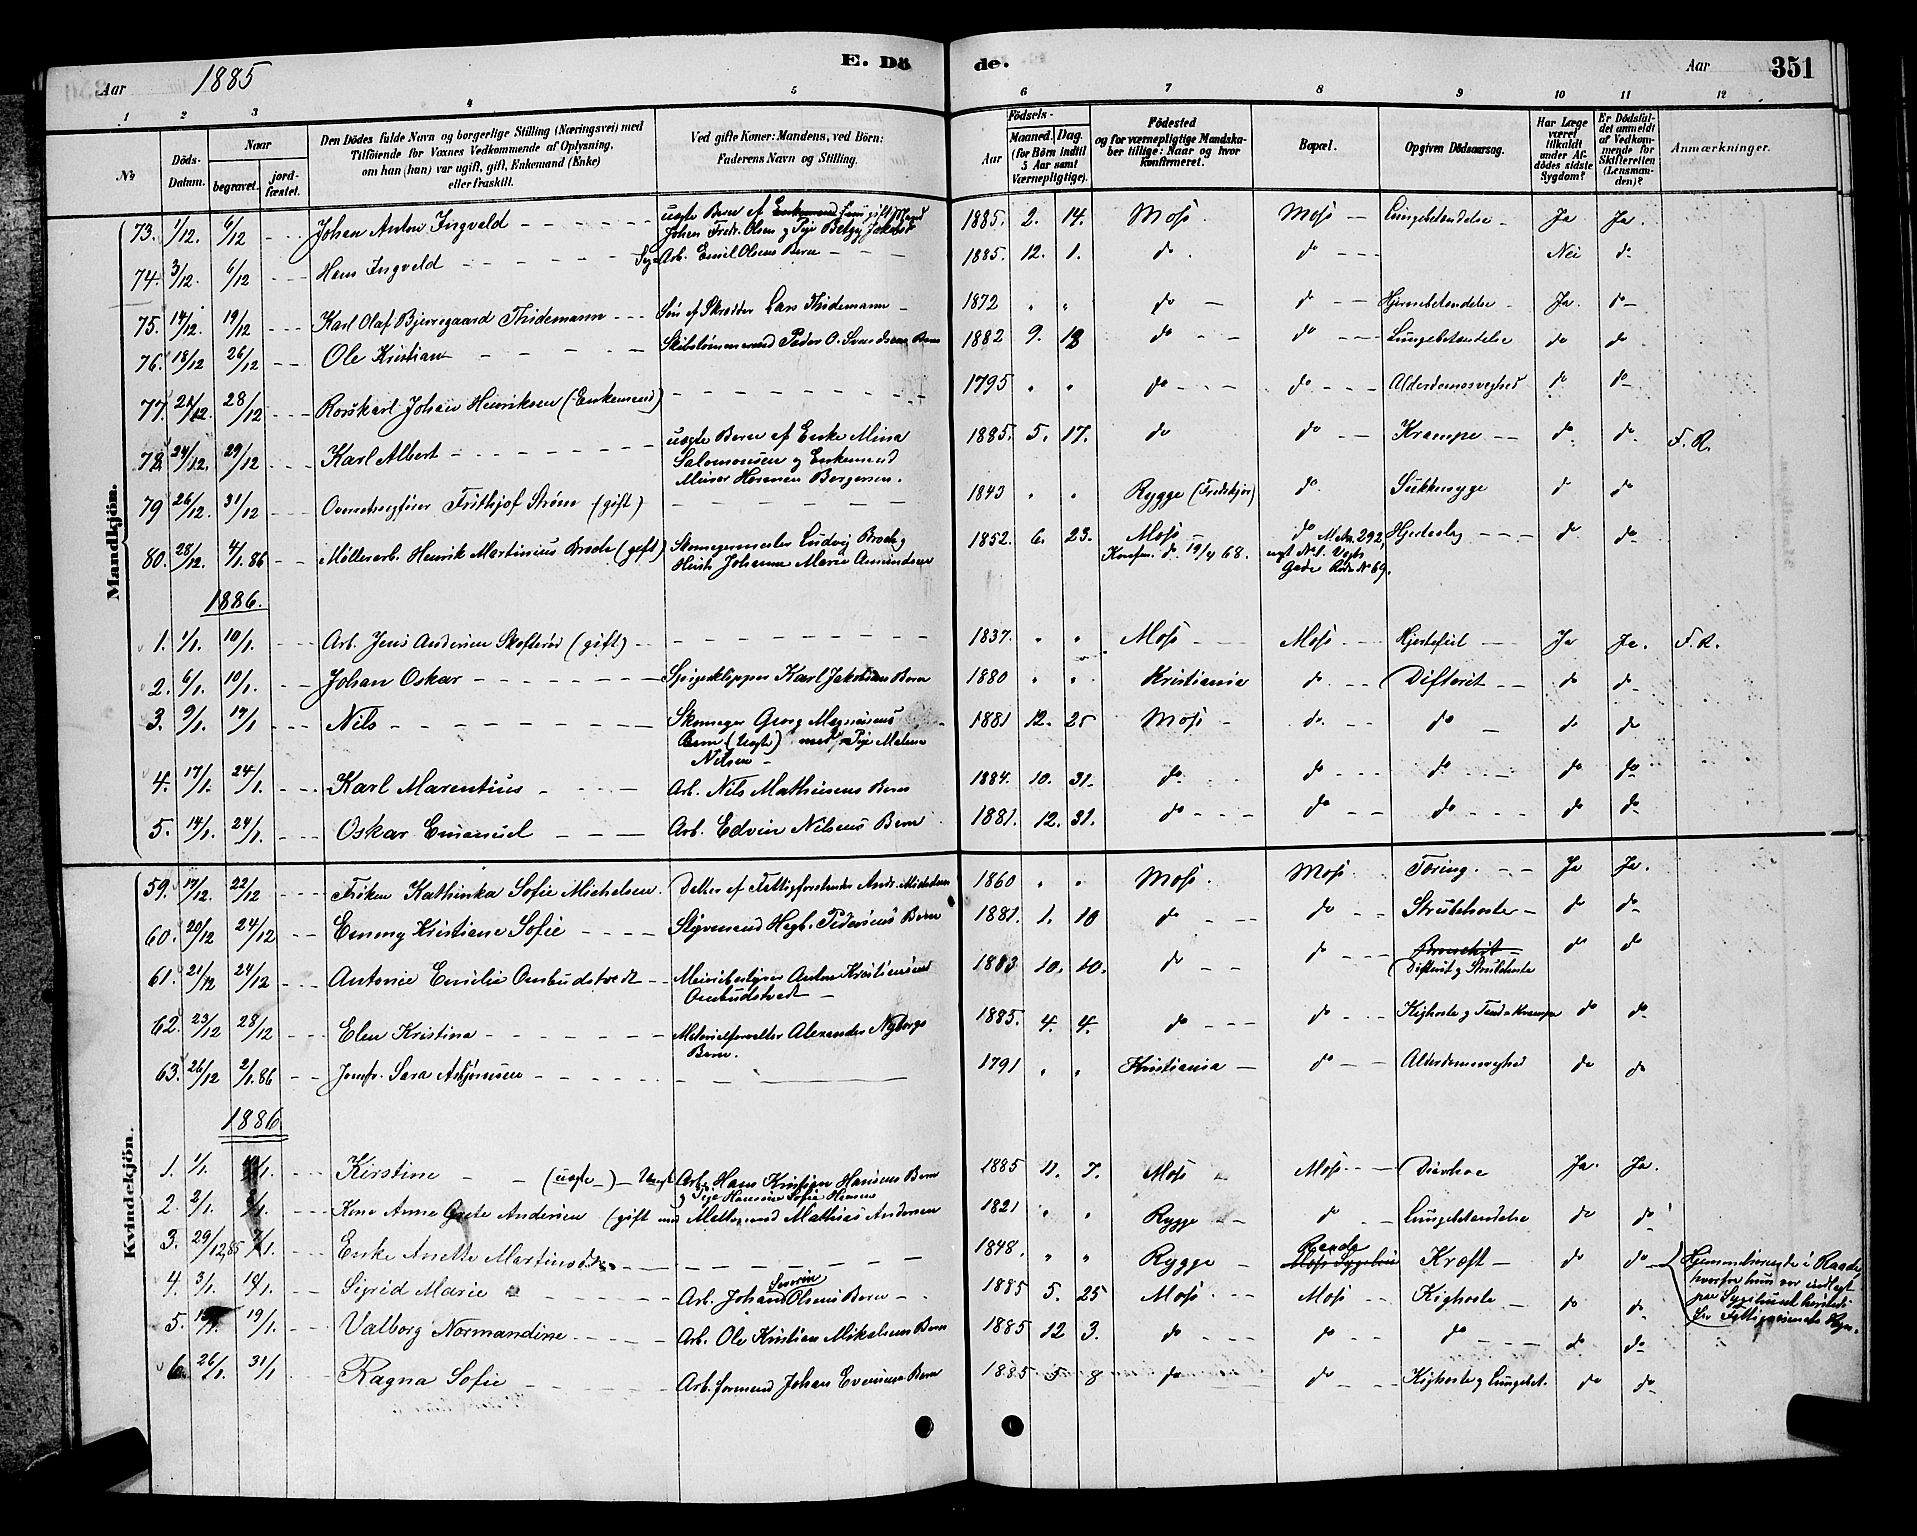 Aar 1885 E. Dö de. Aar 351
1 2 3 4 5 6 7 8 9 10 11 12
No
Döds-Datum.
Naar
begravet.
jord-fæstet.
Den Dödes fulde Navn og borgerlige Stilling (Næringsvei) med
Tilföiende for Voxnes Vedkommende af Oplysning,
om han (hun) var ugift, gift, Enkemand (Enke)
eller fraskilt.
Ved gifte Koner: Mandens, ved Börn:
Faderens Navn og Stilling.
Födsels-
Aar
Maaned. Dag.
(for Börn indtil
5 Aar samt
Værnepligtige).
Födested
og for værnepligtige Mandska-
ber tillige: Naar og hvor
konfirmeret.
Bopæl.
Opgiven Dödsaarsag.
Har Læge
været
tilkaldt
under Af-
dödes sidste
Sygdom?
Er Dödsfal-
det anmeldt
af Vedkom-
mende for
Skifteretten
(Lensman-
den)?
Anmærkninger.
Mandkjön.
73. 1/12. 6/12 Johan Anton Ingveld uægte Barn af Enkemand gift Mand 1885. 2. 14. Moss. Moss Lungebetændelse Ja Ja.
Johan Fredr. Olsen og Pige Betzy Jakobsd
74. 3/12. 6/12 Hans Ingveld Arb. Emil Olsens Barn 1885. 12. 1. do. do Nei do
75. 14/12. 19/12 Karl Olaf Bjerregaard Thidemann Søn af Skrædder Lars Thidemann 1872 " " do do Hjernebetændelse Ja. do
76. 18/12 26/12 Ole Kristian Skibstømmermand Peder O. Svendsens Barn 1882 9. 13 do do Lungebetændelse do do
77. 22/12. 28/12 Rorskarl Johan Henriksen (Enkemand) 1795 " " do do Alderdomssvaghed do do
78. 24/12. 29/12 Karl Albert uægte Barn af Enke Mina 1885. 5. 17. do do Krampe do. do. F. R.
Salomonsen og Enkemand
Murer Herman Borgersen.
79 26/12. 31/12 Frithjof Strøm (gift) 1843 " " Rygge do. Sukkersyge do do
80. 28/12. 4/1. 86 Møllerarb. Henrik Martinius Brode (gift) Skomagermester Ludvig Brode og 1852. 6. 23. Moss do M. No. 292, Hjerteslag do do
Johanne Marie Amundsen Konfir. d. 19/4 68. Gade Rode No 69.
1886.
1. 1/1. 10/1. Arb. Jens Andersen Skofterød (gift) 1837. " " Moss Moss Hjertefeil Ja Ja. F. R.
2. 6/1. 10/1. Johan Oskar Spigerklipper Karl Jakobsens Barn 1880 " " Kristiania do Difterit do do
3. 9/1. 17/1 Nils Skomager Georg Magnusens 1881 12. 25 Moss do. do do do
Barn (Uægte) med Pige Malene
Nilsen
4. 17/1. 24/1. Karl Marentius Arb. Nils Mathisens Barn 1884. 10. 31. do do do do do
5. 14/1. 24/1. Oskar Emanuel Arb. Edvin Nilsens Barn 1881. 12. 31. do do do do do
Kvindekjön.
59. 17/12. 22/12 Frøken Kathinka Sofie Michelsen. Datter af Fattigforstander Andr. Michelsen 1860 " " Moss. Moss. Tæring. Ja Ja.
60. 20/12 24/12 Emmy Kristiane Sofie Styrmand Hagb. Pedersens Barn 1881. 1. 10 do do Strubehoste do do
61. 21/12 24/12 Antonie Emilie Ombudstvedt Meieribestyrer Anton Kristiansens 1883 10. 10. do do Bronchit do do
Ombudstvedt Difterit og Strubehoste
62. 23/12 28/12 Elen Kristina Materialforvalter Alexander Nyborgs 1885. 4. 4. do do Kighoste og Tandkrampe do do
Barn.
63. 26/12 2/1. 86 Jomfr. Sara Asbjørnsen 1791 " " Kristiania do Alderdomssvaghed do do
1886
1. 1/1. 1/1. Kirstine (uægte) Uægt Arb. Hans Kristian Hansens Barn 1885 11. 7. Moss Moss Diarrhoe Ja. Ja.
og Pige Hansine Sofie Hansens
2. 2/1. 9/1. Kone Anne Grete Andersen (gift med Matros Mathias Andersen 1821 " " Rygge do Lungebetændelse do do
3. 29/12.85 7/1. Enke Anette Martinsdr 1848. " " Rygge Raade Moss Sygehus Kræft do do Hjemmehørende i Raade,
hvorfra hun var indlagt
paa Sygehuset herstede
for Fattigvæsenets Regn.
4. 3/1. 10/1. Sigrid Marie Arb. Johan Severin Olsens Barn 1885 5. 25 Moss Moss Kighoste do do
5. 19/1. Valborg Normandine Arb. Ole Kristian Mikelsens Barn 1885 12 3. do do do do. do
6. 26/1. 31/1 Ragna Sofie Arb.formand Johan Evensens Barn 1885 5 8 do do Kighoste og Lungebet. do do